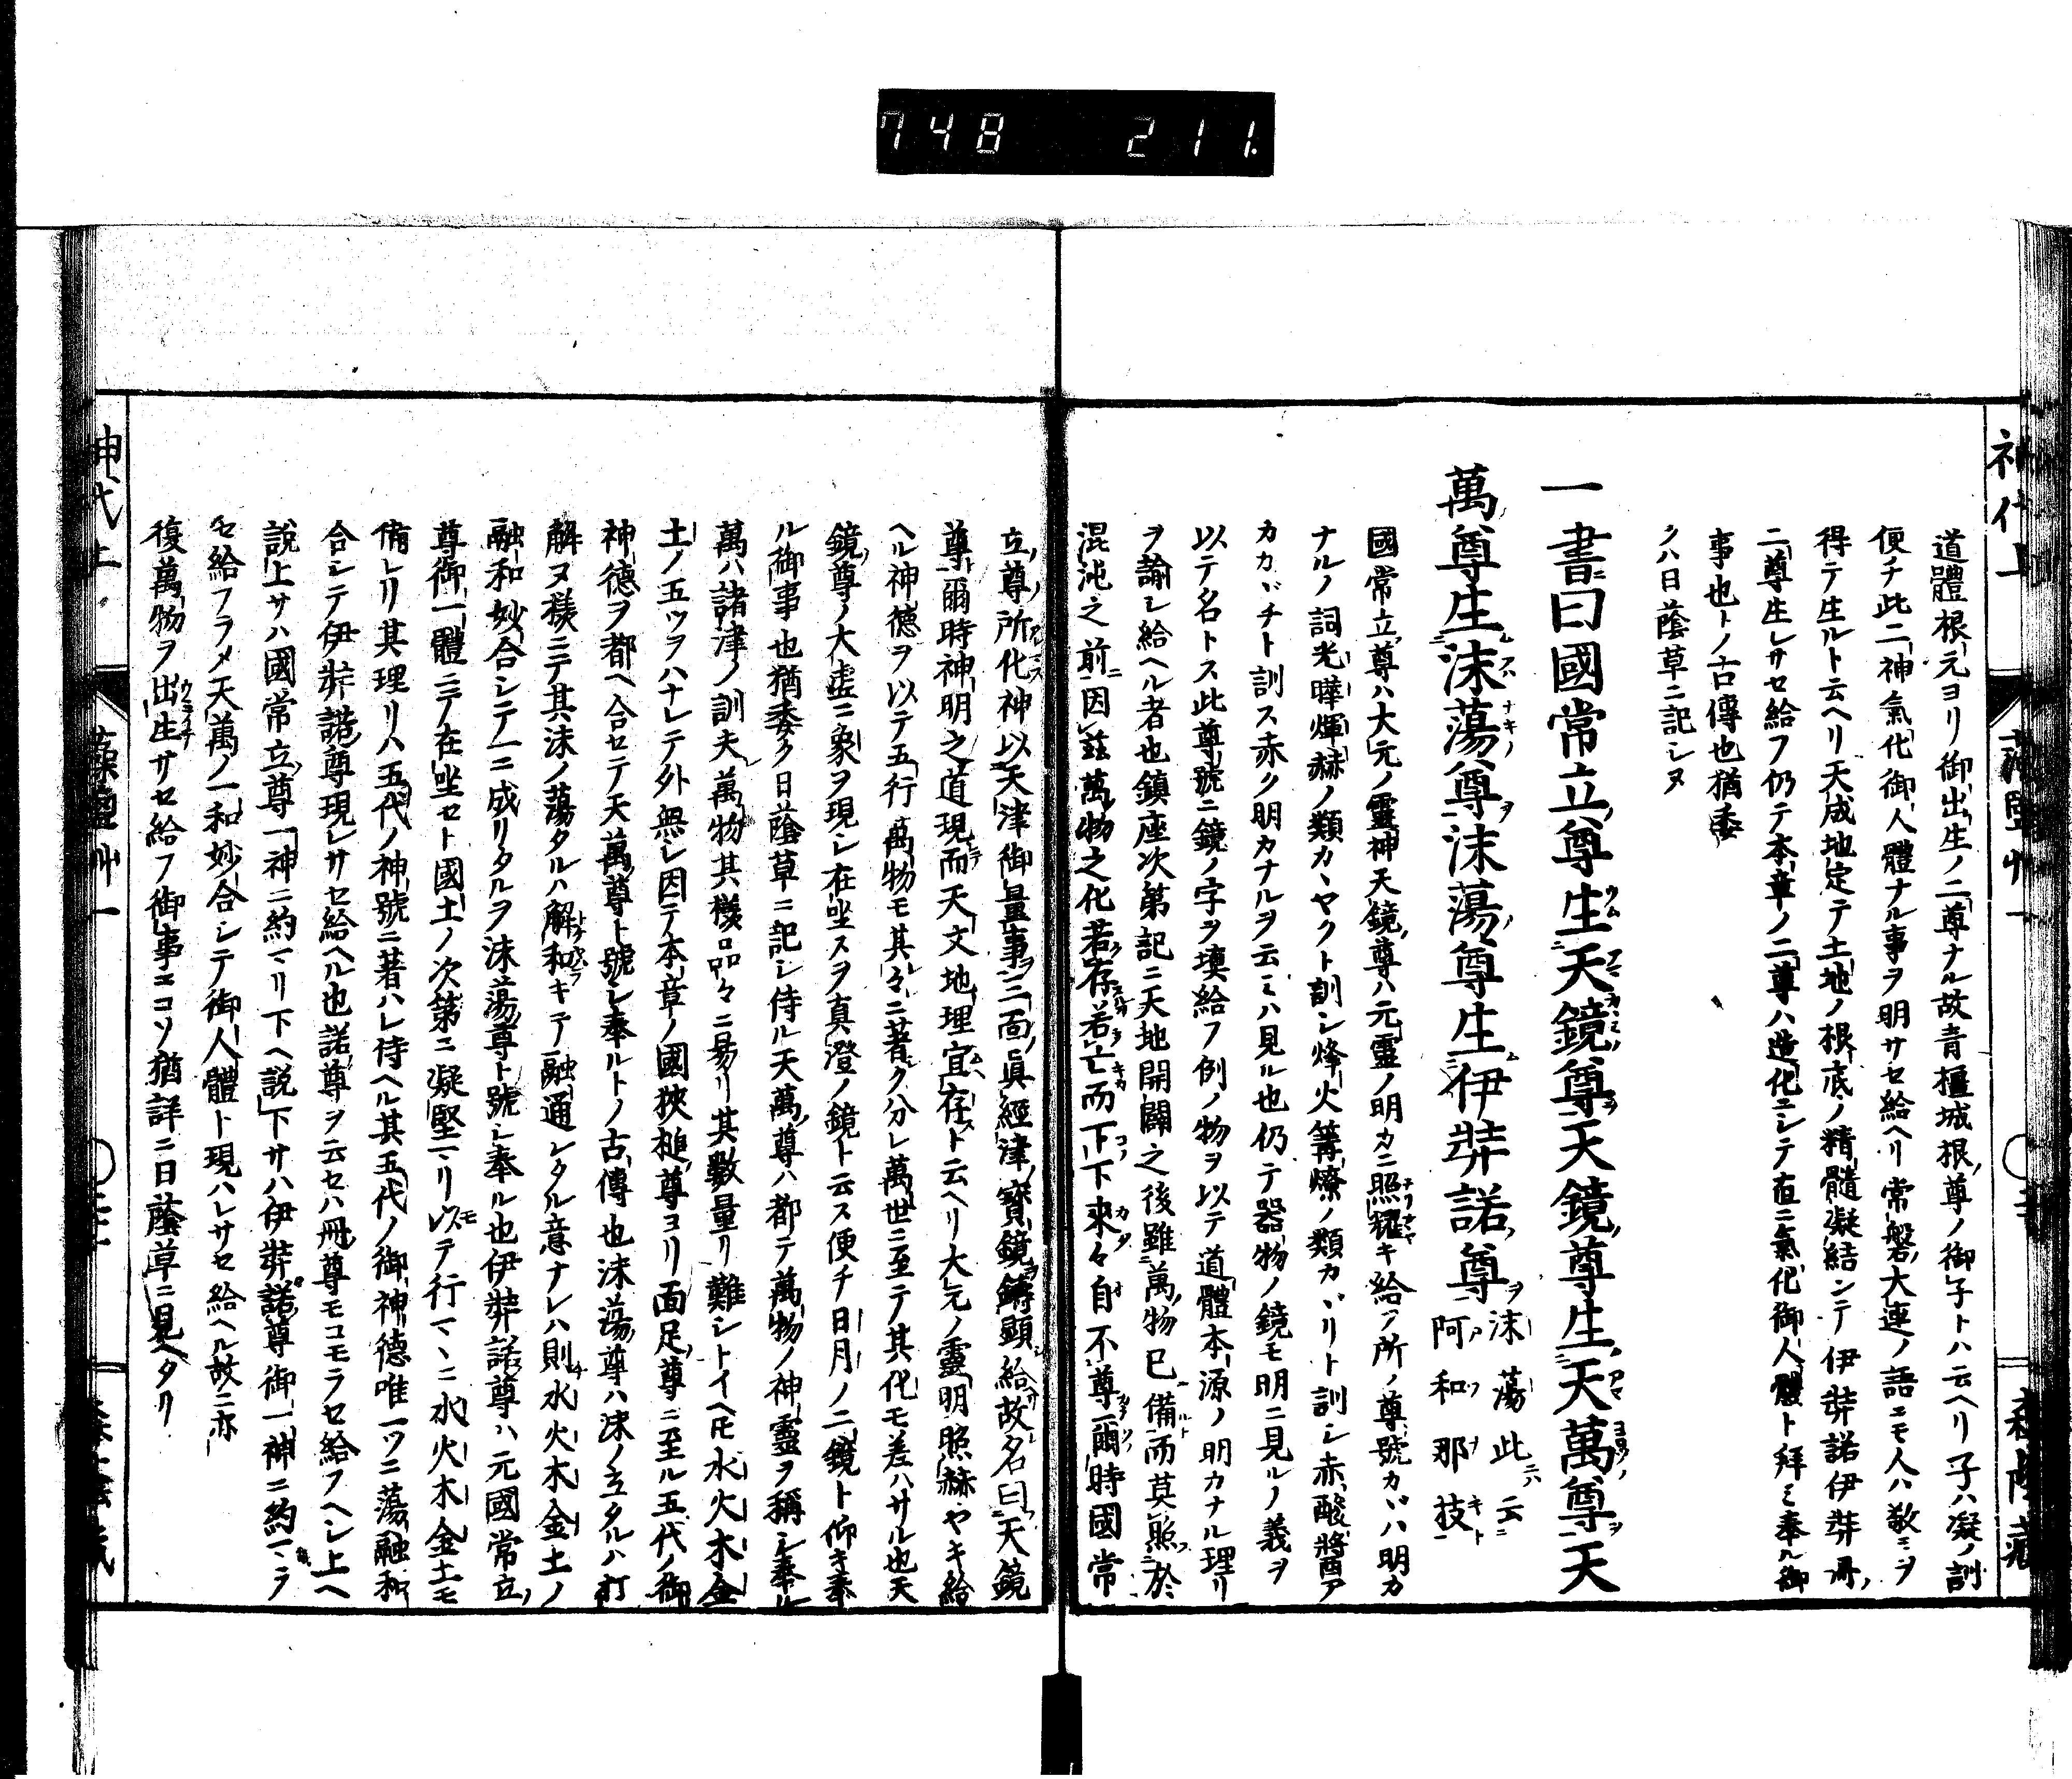 748 211.
神代上
道體根元ヨリ御出生ノ二尊ナル故青橿城根尊ノ御子トハ云ヘリ子ハ凝ノ訓
便チ此二神氣化御人體ナル事ヲ明サセ給ヘリ常磐大連ノ語ニモ人ハ敬ミヲ
得テ生ルト云ヘリ天成地定テ土地ノ根底ノ精髓凝結ンテ伊弉諾伊弉冊
二尊生レサセ給フ仍テ本章ノ二尊ハ造化ニシテ直ニ氣化御人體ト拜ミ奉ル御
事也トノ古傳也猶委
クハ日蔭草ニ記シヌ
一書曰國常立尊生天鏡尊天鏡尊生天萬尊天
萬尊生沫蕩尊沫蕩尊生伊弉諾尊
沫蕩此云
阿和那技
國常立尊ハ大元ノ靈神天鏡尊ハ元靈ノ明カニ照耀キ給フ所ノ尊號カヾハ明カ
ナルノ詞光曄煇赫ノ類カヽヤクト訓ン烽火篝燎ノ類カヾリト訓シ赤酸醬ア
カカヾチト訓ス赤ク明カナルヲ云ミハ見ル也仍テ器物ノ鏡モ明ニ見ルノ義ヲ
以テ名トス此尊號ニ鏡ノ字ヲ填給フ例ノ物ヲ以テ道體本源ノ明カナル理リ
ヲ諭シ給ヘル者也鎮座次第記ニ天地開闢之後雖萬物已備而莫照於
混沌之前因茲萬物之化若存若亡而下下來々自不尊爾時國常
立尊所化神以天津御量事三面眞經津寶鏡鑄顯給故名曰天鏡
尊爾時神明之道現而天文地理宜存ト云ヘリ大元ノ靈明照赫ヤキ給
ヘル神德ヲ以テ五行萬物モ其々ニ著ク分レ萬世ニ至テ其化モ差ハサル也天
鏡尊ノ大虛ニ象ヲ現レ在坐スヲ真澄ノ鏡ト云ス便チ日月ノ二鏡ト仰キ奉
ル御事也猶委ク日蔭草ニ記シ侍ル天萬尊ハ都テ萬物ノ神靈ヲ稱シ奉ル
萬ハ諸津ノ訓夫萬物其樣品々ニ易リ其數量リ難シトイヘ𪜈水火木金
土ノ五ツヲハナレテ外無シ因テ本章ノ國狹槌尊ヨリ面足尊ニ至ル五代ノ御
神德ヲ都ヘ合セテ天萬尊ト號シ奉ルトノ古傳也沫蕩尊ハ沫ノ立タルハ打
解ヌ樣ニテ其沫ノ蕩タルハ解和キテ融通シタル意ナレハ則水火木金土ノ
融和妙合シテ一ニ成リタルヲ沫蕩尊ト號シ奉ル也伊弉諾尊ハ元國常立
尊御一體ニテ在坐セト國土ノ次第ニ凝堅マリ テ行マヽニ水火木金土モ
備レリ其理リハ五代ノ神號ニ著ハレ侍ヘル其五代ノ御神德唯一ツニ蕩融和
合シテ伊弉諾尊現レサセ給ヘル也諾尊ヲ云セハ冊尊モコモラセ給フヘシ上ヘ
說上サハ國常立尊一神ニ約マリ下ヘ說下サハ伊弉諾尊御一神ニ約マラ
セ給フラメ天萬ノ一和妙合シテ御人體ト現ハレサセ給ヘル故ニ亦
復萬物ヲ出生サセ給フ御事ニコソ猶詳ニ日蔭草ニ見ヘタリ
神代上